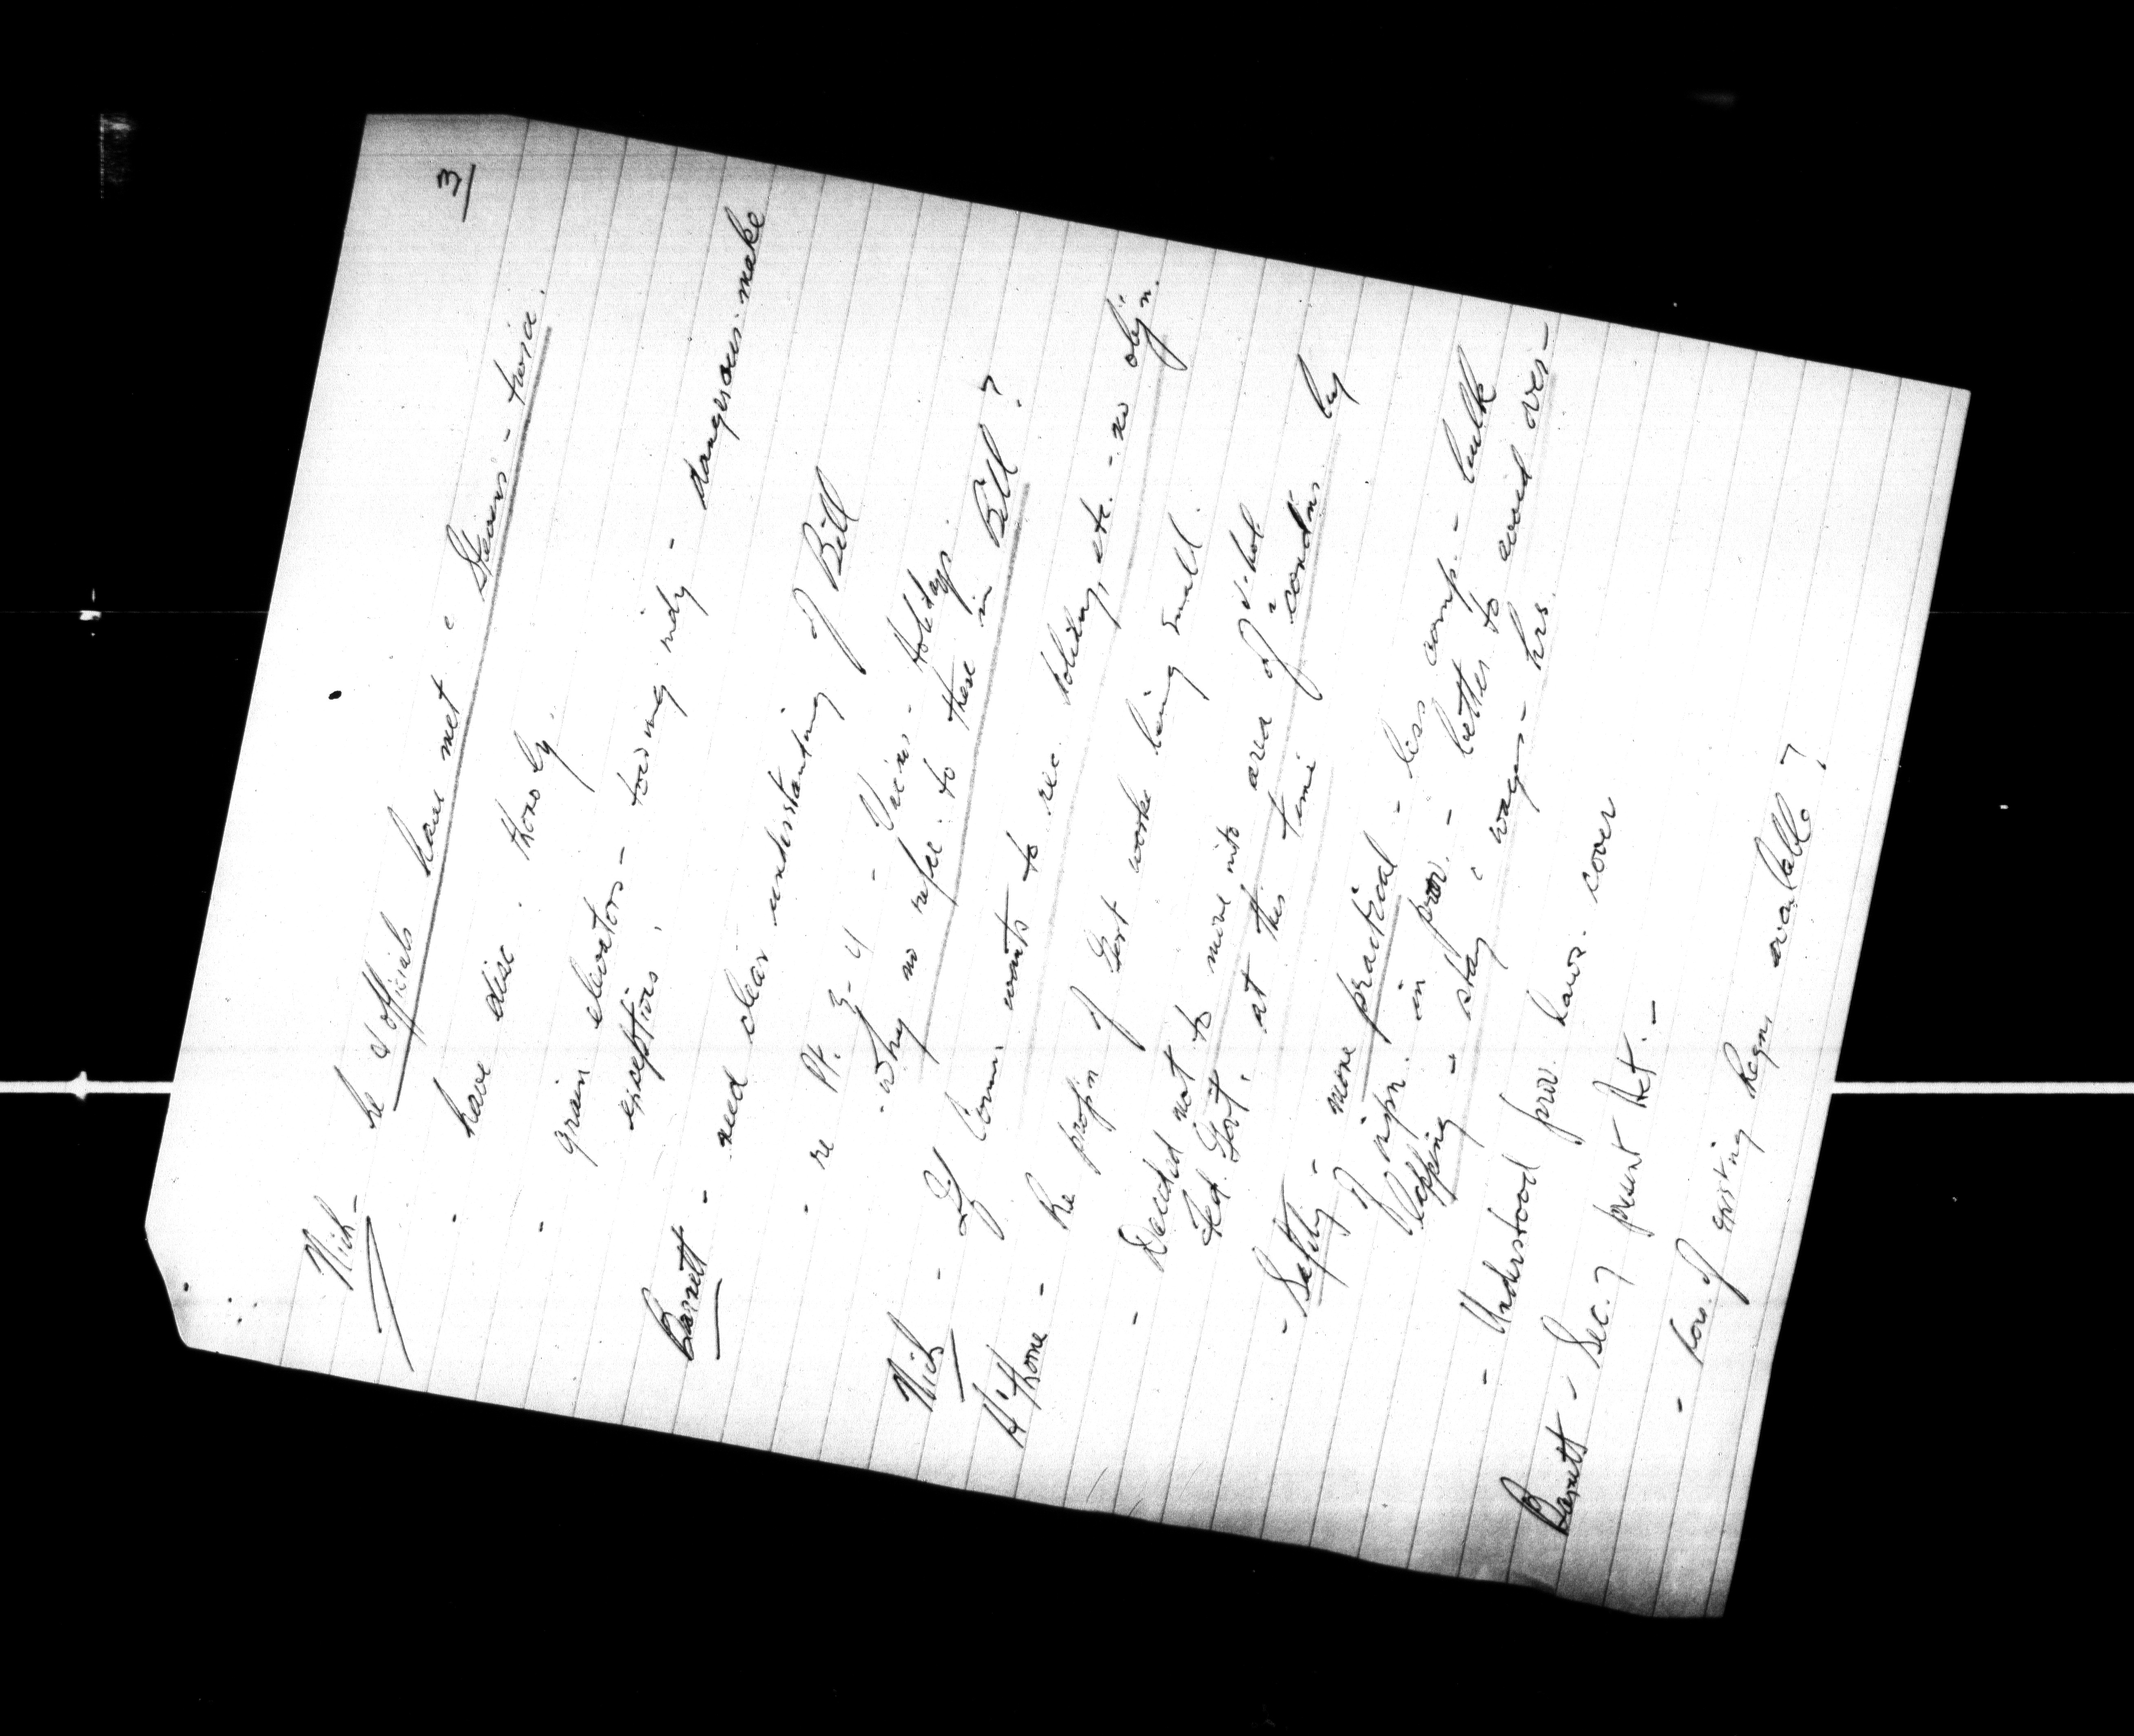 3
Nich - he & officials have met c̄ Steans - twice.
- have disc. thoroly.
- grain elevators - towing indy - dangerous. make
exceptions.
Barrett - need clear understanding of Bill
- re Pt. 3-4 - Vac'ns - Holidays.
- Why no refec. to these in Bill?
Nich - If Comm. wants to rec. holidays, etc. - no obj'n.
H'thorne - Re prop'n of Govt works being small.
- Decided not to move into area of
Fed. Govt. at this time cond'ns by
- Safety - more practical - less comp. - bulk
of in prov. - better to avoid over-
lapping - stay c̄ wages - hrs.
- Understood prov. laws cover
Barrett - Sec. 7 present Act. -
- of existing Regns available?